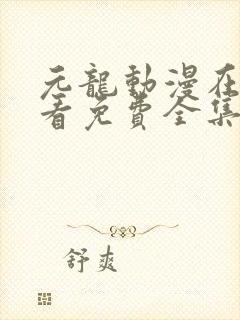 元龍動漫在
看免費全集
舒爽